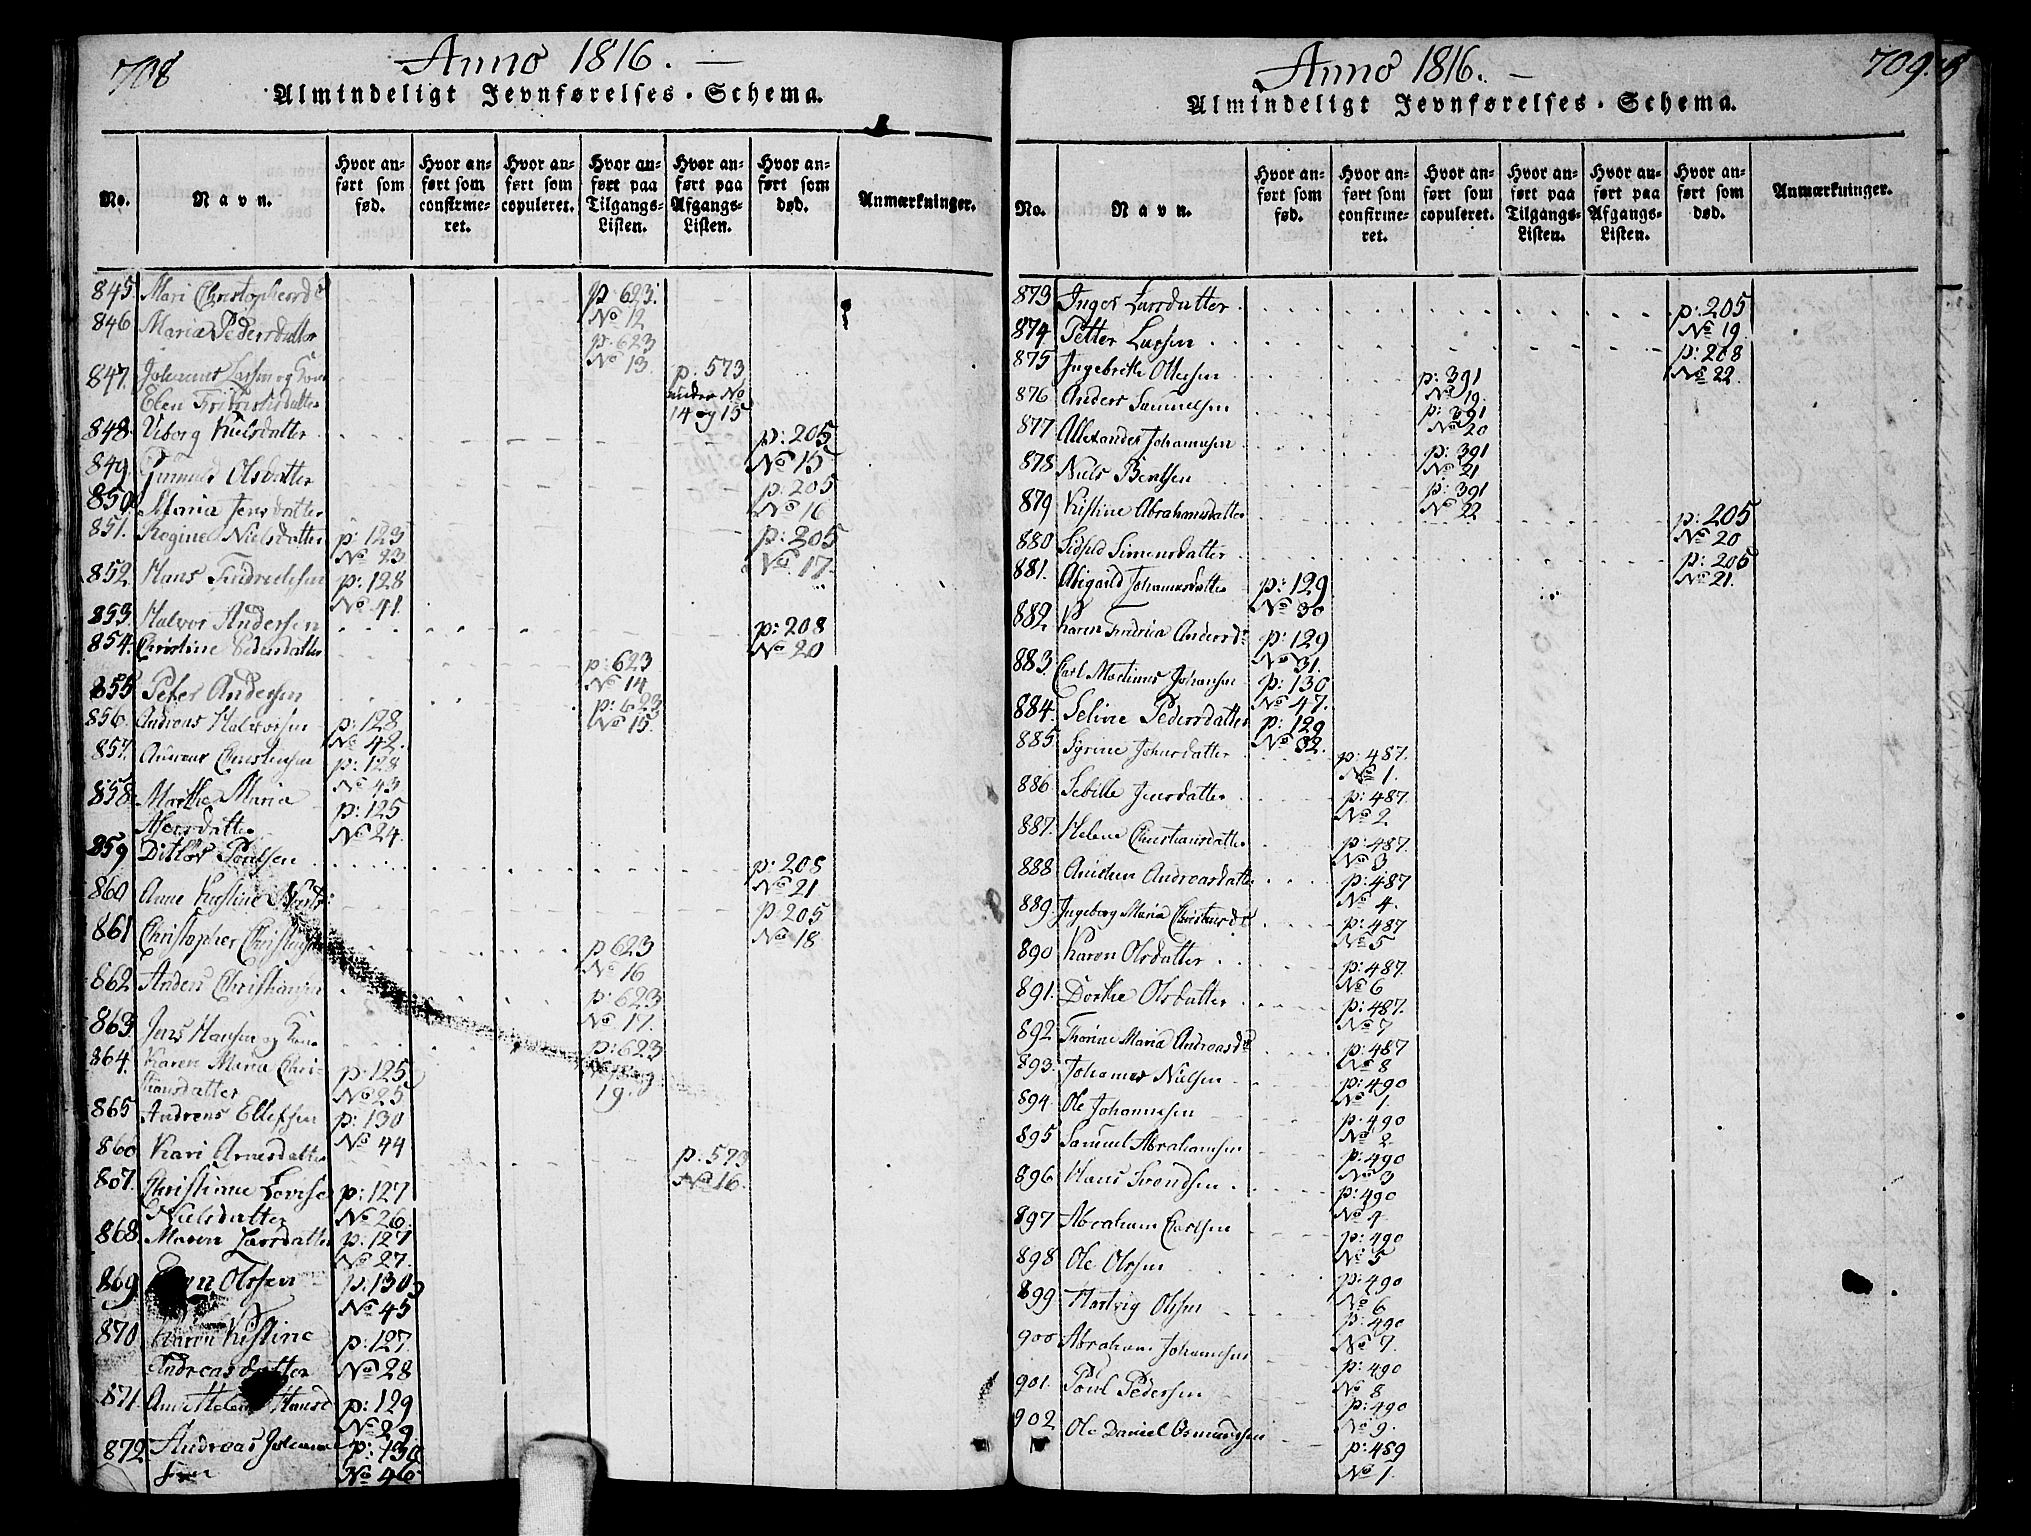 708
Anno 1816.
Almindeligt Jevnførelses-Schema.
No.
Navn.
Hvor anført som fød.
Hvor anført som confirmeret.
Hvor anført som copuleret.
Hvor anført paa Tilgangs-Listen.
Hvor anført paa Afgangs-Listen.
Hvor anført som død.
Anmærkninger.
845 Mari Christophersd p: 623. No 12
846 Maria Pedersdatter p: 623 No 13.
847. Johannes Larsen og Kone
Elen Fridrichsdatter p: 573 under No 14 og 15
848. Viborg Nielsdatter p: 205 No 15
849. Gunnild Olsdatter p: 205 No 16
850 Maria Jensdatter p: 205 No 17.
851. Regine Nielsdatter p: 123 No 23
852. Hans Fredrichsen p: 128 No 41
853. Halvor Andersen p: 208 No 20
854. Christine Pedersdatter p: 623 No 14
855 Peter Andersen p: 623 No 15
856 Andreas Halvorsen p: 128 No 42.
857. Andreas Christensen p: 128 No 43
858. Marthe Maria
Aslersdatter p: 125 No 24.
859 Ditlev Poulsen p: 208 No 21
860 Anne Kirstine p: 205 No 18
861 Christopher p: 623 No 16
862 Anders Christiansen p: 623 No 17.
863 Jens Hansen og Kone p: 623
19.
864. Karen Maria Christiansdatter p: 125 No 25
865 Andreas Ellefsen p: 130 No 44
866 Kari Arnesdatter p: 573 No 16.
867. Christiane Lovise
Nielsdatter p: 127 No 26.
868. Maren Larsdatter p: 127 No 27.
869 Olssen p: 130 No 45
870 Karen Kistine
Andreasdatter p: 127. No 28
871. Anne Helene Hansd p: 129 No 29
872. Andreas Johannessen p: 130 No 46
709.
Anno 1816.
Almindeligt Jevnførelses-Schema.
No.
Navn.
Hvor anført som fød.
Hvor anført som confirmeret.
Hvor anført som copuleret.
Hvor anført paa Tilgangs-Listen.
Hvor anført paa Afgangs-Listen.
Hvor anført som død.
Anmærkninger.
873 Inger Larsdatter p: 205 No 19
874 Petter Larsen p: 208 No 22.
875 Ingebrith Ollesen p: 391 No 19.
876 Anders Samuelsen p: 391 No 20
877 Allexander Johannesen p: 391 No 21
878 Niels Bentsen p: 391 No 22
879 Kistine Abrahamsdatter p: 205 No 20
880 Sidsel Simensdatter p: 205 No 21.
881. Abigaild Johannesdatter p: 129 No 30
882. Karen Andersd p: 129 No 31.
883. Carl Martinus Johansen p: 130 No 47.
884. Seline Pedersdatter p: 129 No 32.
885. Syrine Johnsdatter p: 487. No 1.
886 Sebille Jensdatter p: 487. No 2
887. Helene Christiansdatter p: 487. No 3
888 Andreasdatter p: 487 No 4.
889. Ingeborg Maria p: 487 No 5
890 Karen Olsdatter p: 487. No 6
891. Dorthe Olsdatter p: 487. No 7
892 Thorine Maria Andreasd p: 487 No 8
893. Johannes Nielsen p: 490 No 1.
894. Ole Johannesen p: 490 No 2
895 Samuel Abrahamsen p: 490 No 3
896 Hans Svendsen p: 490 No 4.
897 Abraham Carlsen p: 490 No 5
898 Ole Olssen p: 490 No 6
899 Hartvig Olssen p: 490 No 7.
900 Abraham Johannesen p: 490 No 8
901. Poul Pedersen p: 490 No 9.
902 Ole Daniel Osmundsen p: 489 No 1.